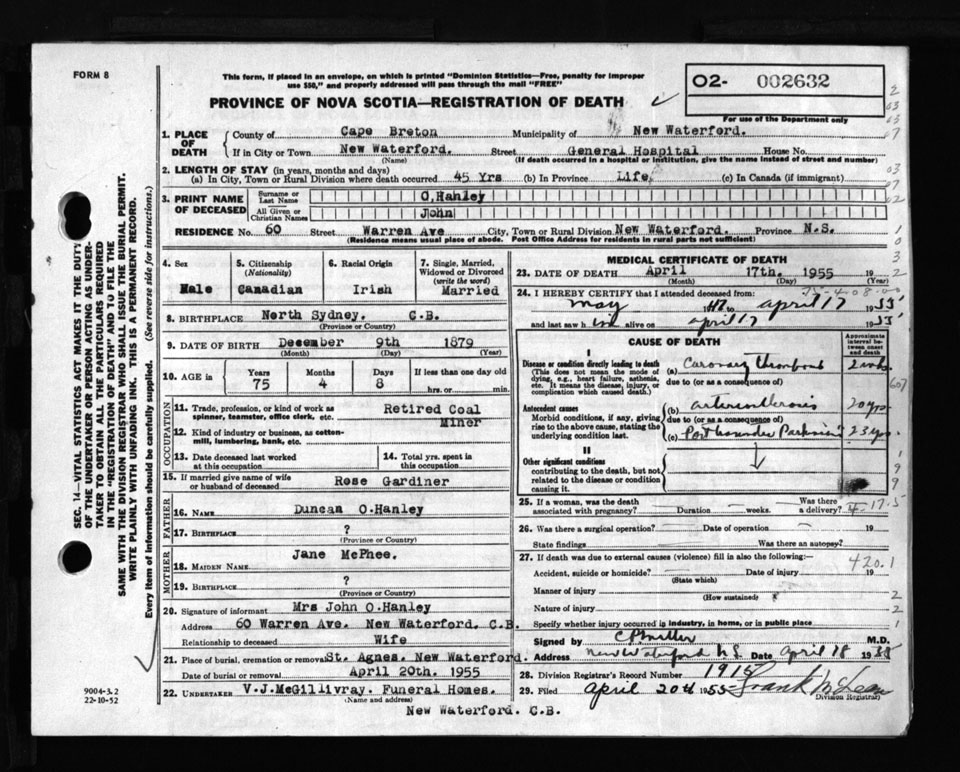 FORM 8
This form, if placed in an envelope, on which is printed "Dominion Statistics—Free, penalty for improper
use $50," and properly addressed will pass through the mail "FREE"
O2- 002632
For use of the Department only
PROVINCE OF NOVA SCOTIA—REGISTRATION OF DEATH
1. PLACE OF DEATH
County of Cape Breton Municipality of New Waterford.
If in City or Town New Waterford. Street General Hospital House No.
(Name) (If death occurred in a hospital or institution, give the name instead of street and number)
2. LENGTH OF STAY (in years, months and days)
(a) In City, Town or Rural Division where death occurred 45 Yrs (b) In Province Life (c) In Canada (if immigrant)
3. PRINT NAME OF DECEASED
Surname or Last Name O.Hanley
All Given or Christian Names John
RESIDENCE No. 60 Street Warren Ave City, Town or Rural Division New Waterford. Province N.S.
(Residence means usual place of abode. Post Office Address for residents in rural parts not sufficient)
4. Sex
Male
5. Citizenship (Nationality)
Canadian
6. Racial Origin
Irish
7. Single, Married, Widowed or Divorced (write the word)
Married
8. BIRTHPLACE North Sydney. C.B.
(Province or Country)
9. DATE OF BIRTH December 9th 1879
(Month) (Day) (Year)
10. AGE in Years Months Days If less than one day old
75 4 8 hrs. or min.
OCCUPATION
11. Trade, profession, or kind of work as spinner, teamster, office clerk, etc. Retired Coal Miner
12. Kind of industry or business, as cotton-mill, lumbering, bank, etc.
13. Date deceased last worked at this occupation
14. Total yrs. spent in this occupation
15. If married give name of wife or husband of deceased Rose Gardiner
FATHER
16. NAME Duncan O.Hanley
17. BIRTHPLACE ?
(Province or Country)
MOTHER
18. MAIDEN NAME Jane McPhee.
19. BIRTHPLACE ?
(Province or Country)
20. Signature of informant Mrs John O.Hanley
Address 60 Warren Ave. New Waterford, C.B.
Relationship to deceased Wife
21. Place of burial, cremation or removal St. Agnes. New Waterford.
Date of burial or removal April 20th. 1955
22. UNDERTAKER V.J.McGillivray. Funeral Homes.
(Name and address)
New Waterford. C.B.
MEDICAL CERTIFICATE OF DEATH
23. DATE OF DEATH April 17th. 1955 19
(Month) (Day) (Year)
24. I HEREBY CERTIFY that I attended deceased from:
May to april 17 1955
and last saw h im alive on april 17 1955
CAUSE OF DEATH
Approximate interval between onset and death
I
Disease or condition directly leading to death
(This does not mean the mode of dying, e.g., heart failure, asthenia, etc. It means the disease, injury, or complication which caused death.)
(a) Coronary thrombosis 2 wks
due to (or as a consequence of)
Antecedent causes
Morbid conditions, if any, giving rise to the above cause, stating the underlying condition last.
(b) arteriosclerosis 20 yrs
due to (or as a consequence of)
(c) 23 yrs.
II
Other significant conditions
contributing to the death, but not related to the disease or condition causing it.
25. If a woman, was the death associated with pregnancy? Duration weeks. Was there a delivery?
26. Was there a surgical operation? Date of operation
State findings Was there an autopsy?
27. If death was due to external causes (violence) fill in also the following:—
420.1
Accident, suicide or homicide? Date of injury 19
(State which)
Manner of injury
(How sustained)
Nature of injury
Specify whether injury occurred in industry, in home, or in public place
Signed by C P Miller M.D.
Address New Waterford N.S. Date April 18 1955
28. Division Registrar's Record Number 1915
29. Filed April 20th 1955 Frank McLean
Division Registrar
SEC. 14—VITAL STATISTICS ACT MAKES IT THE DUTY
OF THE UNDERTAKER OR PERSON ACTING AS UNDER-
TAKER TO OBTAIN ALL THE PARTICULARS REQUIRED
IN THE "REGISTRATION OF DEATH" AND TO FILE THE
SAME WITH THE DIVISION REGISTRAR WHO SHALL ISSUE THE BURIAL PERMIT.
WRITE PLAINLY WITH UNFADING INK. THIS IS A PERMANENT RECORD.
Every item of information should be carefully supplied. (See reverse side for instructions.)
9004-3.2
22-10-52